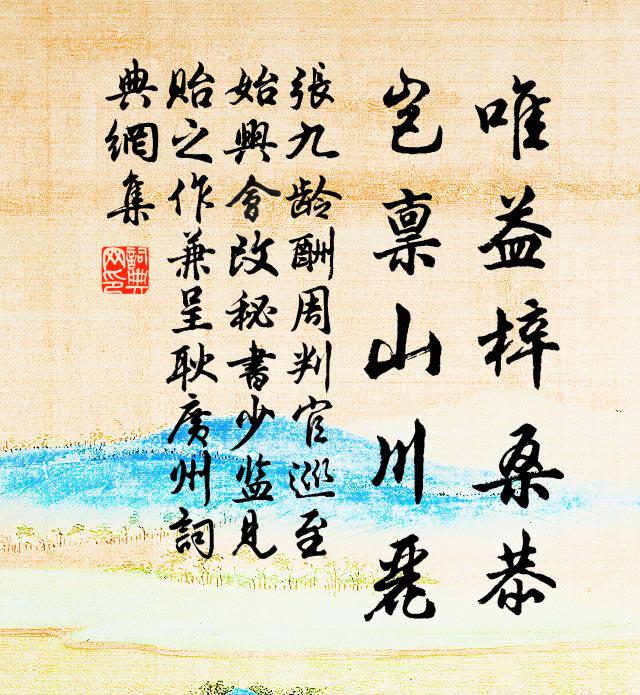 唯益梓桑恭
岂禀山川丽
張九龄酬周判官巡至
始興會改秘書少监見
貽之作兼呈耿廣州詞
典網集
詞典
网印